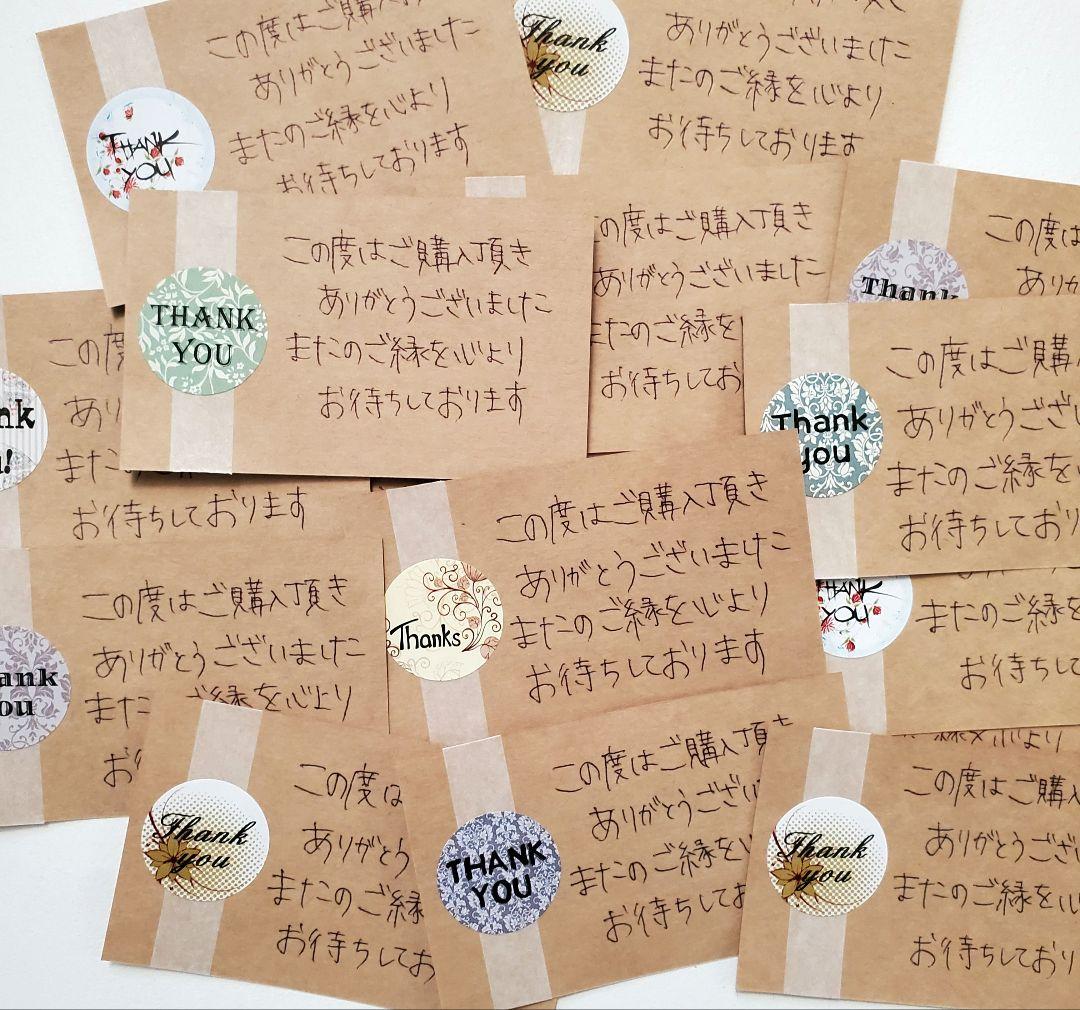 この度はご購入頂き
ありがとうございました
またのご縁を心より
お待ちしております
THANK
YOU
Thank
you
ありがとうございました
またのご縁を心より
お待ちしております
この度はご購入頂き
ありがとうございました
またのご縁を心より
お待ちしております
THANK
YOU
この度はご購入頂き
ありがとうございました
またのご縁を
お待ちしてお
この度は
あり
Thank
この度
あり
また
お待ちしております
nk
この度はご購
ありがとうござい
またのご縁を
お待ちしており
Thank
you
この度はご購入頂き
ありがとうございました
またのご縁を心より
お待ちしております
Thanks
この度はご購入頂き
ありがとうございました
また
ご縁を心より
お
ank
ou
THANK
YOU
またのご縁を
お待ちして
この度は
ありがとう
またのご縁
お待ちしてお
Thank
you
この度はご購入頂
ありがとうござい
またのご縁を
お待ちしてお
THANK
YOU
この度はご購入
ありがとうござい
またのご縁を
お待ちしており
Thank
you